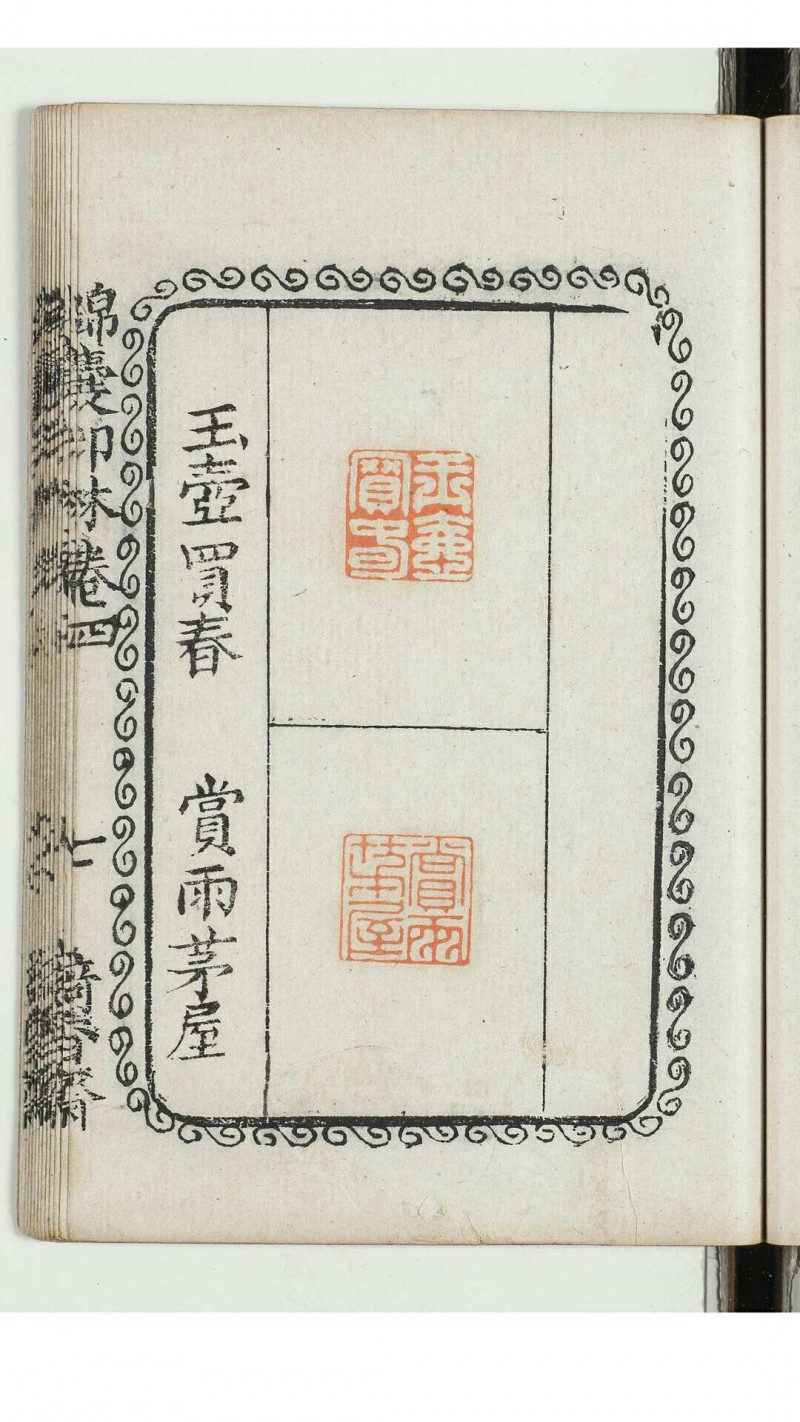 玉壺買春
賞雨茅屋
玉壺買春
賞雨茅屋
錦囊印林卷四
七